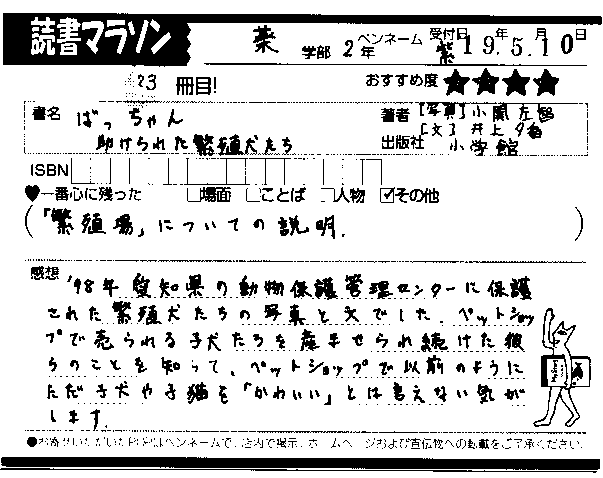 読書マラソン
薬 学部 2年 ペンネーム 紫 受付日 19年5月10日
23 冊目! おすすめ度 ★★★★
書名 ばっちゃん 著者 [写真]小閑左智
助けられた繁殖犬たち [文]井上夕香
出版社 小学館
ISBN
♥一番心に残った □場面 □ことば □人物 ☑その他
(「繁殖場」についての説明.)
感想 '98年愛知県の動物保護管理センターに保護
された繁殖犬たちの写真と文でした. ペットショッ
プで売られる子犬たちを産ませられ続けた彼
らのことを知って、ペットショップで以前のように
ただ子犬や子猫を「かわいい」とは言えない気が
します.
●お寄せいただいたPOPはペンネームで、店内で掲示、ホームページおよび宣伝物への転載をご了承ください.